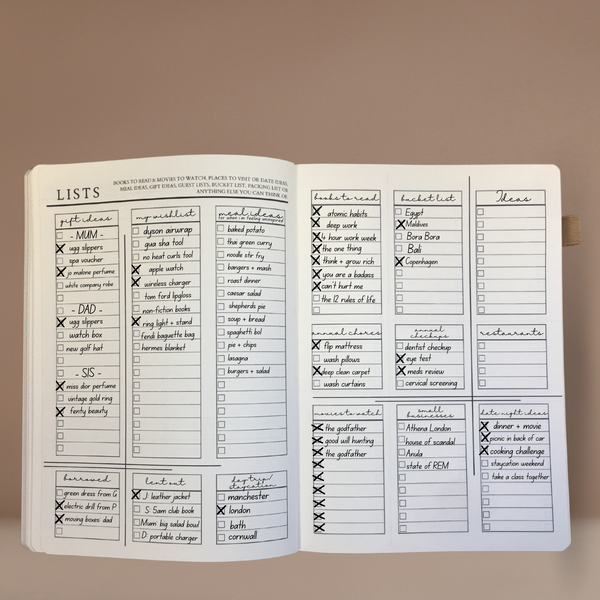 LISTS
BOOKS TO READ & MOVIES TO WATCH, PLACES TO VISIT OR DATE IDEAS,
MEAL IDEAS, GIFT IDEAS, GUEST LISTS, BUCKET LIST, PACKING LIST OR
ANYTHING ELSE YOU CAN THINK OF.
gift ideas
- MUM -
ugg slippers
spa voucher
jo malone perfume
white company robe
- DAD -
ugg slippers
watch box
new golf hat
- SIS -
miss dior perfume
vintage gold ring
fenty beauty
my wishlist
dyson airwrap
gua sha tool
no heat curls tool
apple watch
wireless charger
tom ford lipgloss
non-fiction books
ring light + stand
fendi baguette bag
hermes blanket
meal ideas
for when i'm feeling uninspired
baked potato
thai green curry
noodle stir fry
bangers + mash
roast dinner
caesar salad
shepherds pie
soup + bread
spaghetti bol
pie + chips
lasagna
burgers + salad
borrowed
green dress from G
electric drill from P
moving boxes: dad
lent out
J: leather jacket
S: 5am club book
Mum: big salad bowl
D: portable charger
day trip/
staycation
manchester
london
bath
cornwall
books to read
atomic habits
deep work
4 hour work week
the one thing
think + grow rich
you are a badass
can't hurt me
the 12 rules of life
bucket list
Egypt
Maldives
Bora Bora
Bali
Copenhagen
Ideas
annual chores
flip mattress
wash pillows
deep clean carpet
wash curtains
annual
checkups
dentist checkup
eye test
meds review
cervical screening
restaurants
movies to watch
the godfather
good will hunting
the godfather
small
businesses
Athena London
house of scandal
Anula
state of REM
date night ideas
dinner + movie
picnic in back of car
cooking challenge
staycation weekend
take a class together